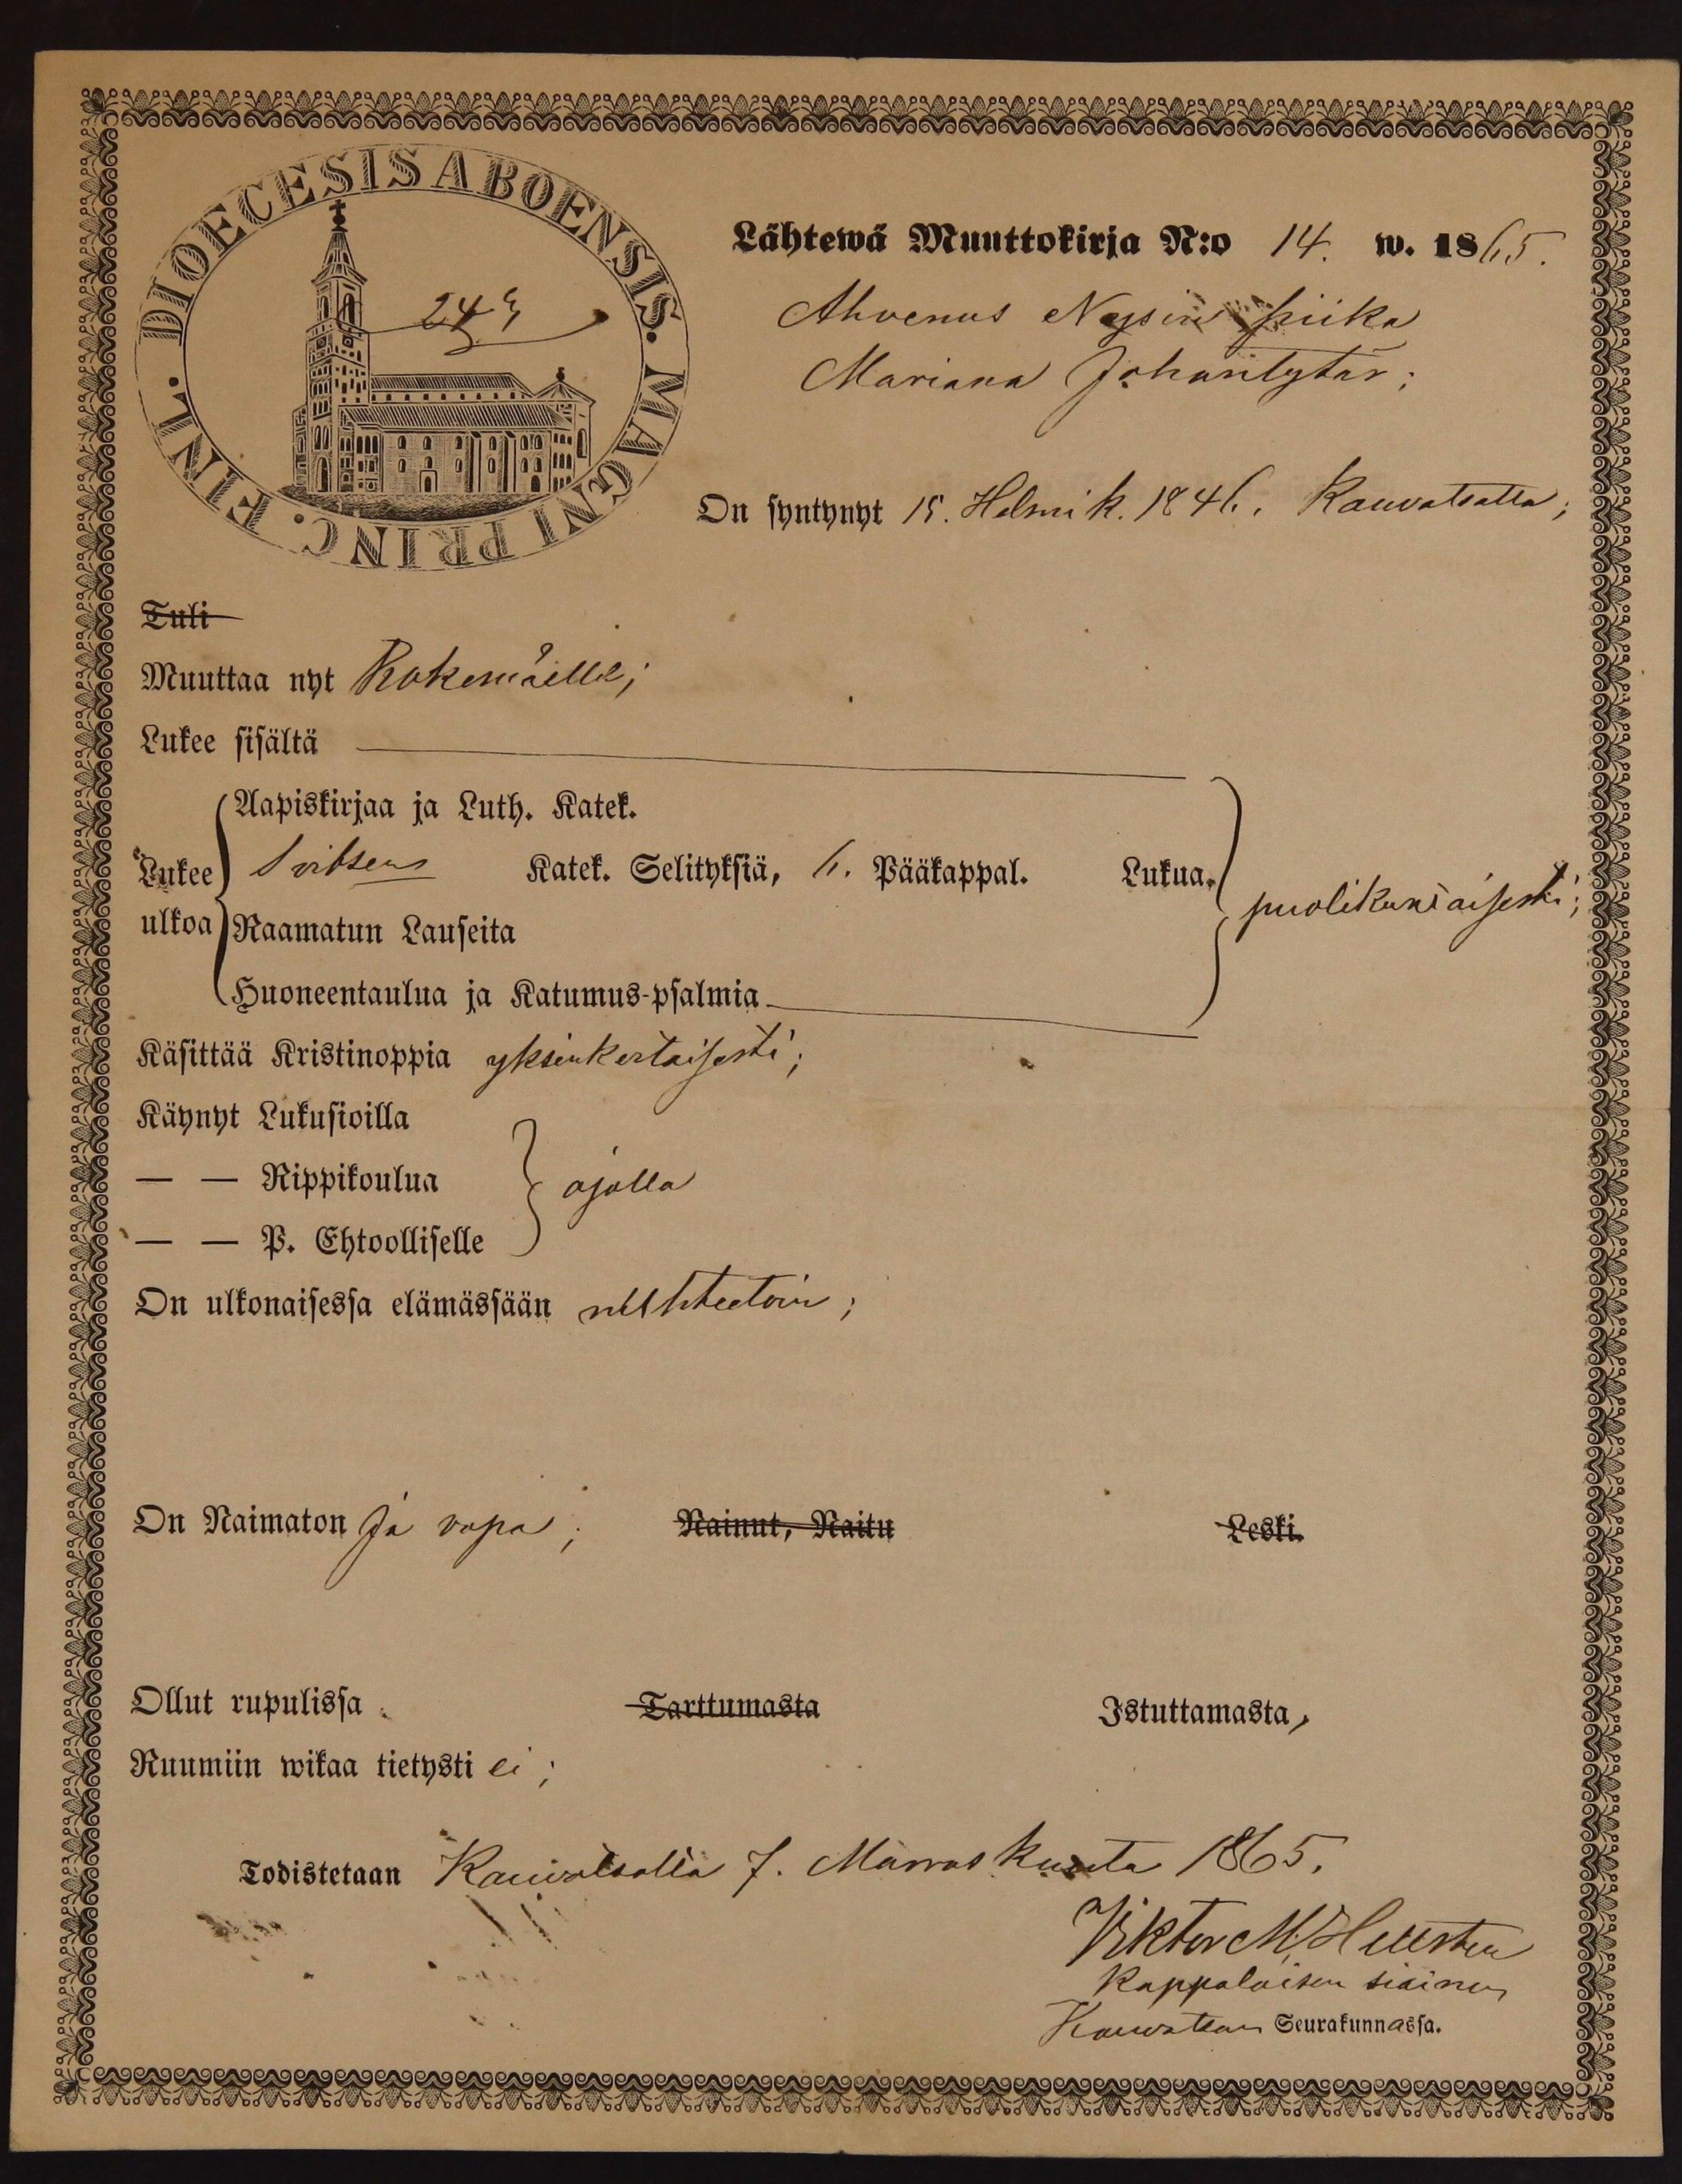 DIOECESIS ABOENSIS. MAGNI PRINC. FINL.
24
Lähtewä Muuttokirja N:o 14. w. 1865.
Ahvenus Nysin piika
Mariana Johantytär;
On syntynyt 15. Helmik. 1846. Kauvatsalla;
Tuli
Muuttaa nyt Kokemäelle;
Lukee sisältä
Aapiskirjaa ja Luth. Katek.
Lukee ulkoa Svibsens Katek. Selityksiä, 6. Pääkappal. Lukua. puolikuniaisesti;
Raamatun Lauseita
Huoneentaulua ja Katumus-psalmia
Käsittää Kristinoppia yksinkertaisesti;
Käynyt Lukusioilla
— — Rippikoulua ajalla
— — P. Ehtoolliselle
On ulkonaisessa elämässään nuhteetoin;
On Naimaton ja vapa; Nainut, Naitu Leski.
Ollut rupulissa Tarttumasta Istuttamasta,
Ruumiin wikaa tietysti ei;
Todistetaan Kauvatsalla 7. Marraskuuta 1865.
Viktor M. Hellsten
Kappalaisen siainen
Kauvatsan Seurakunnassa.